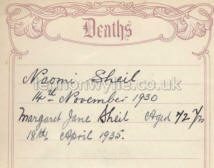 Deaths
Naomi Sheil
14th November 1930
Margaret Jane Sheil Aged 72 Yrs
18th April 1935.